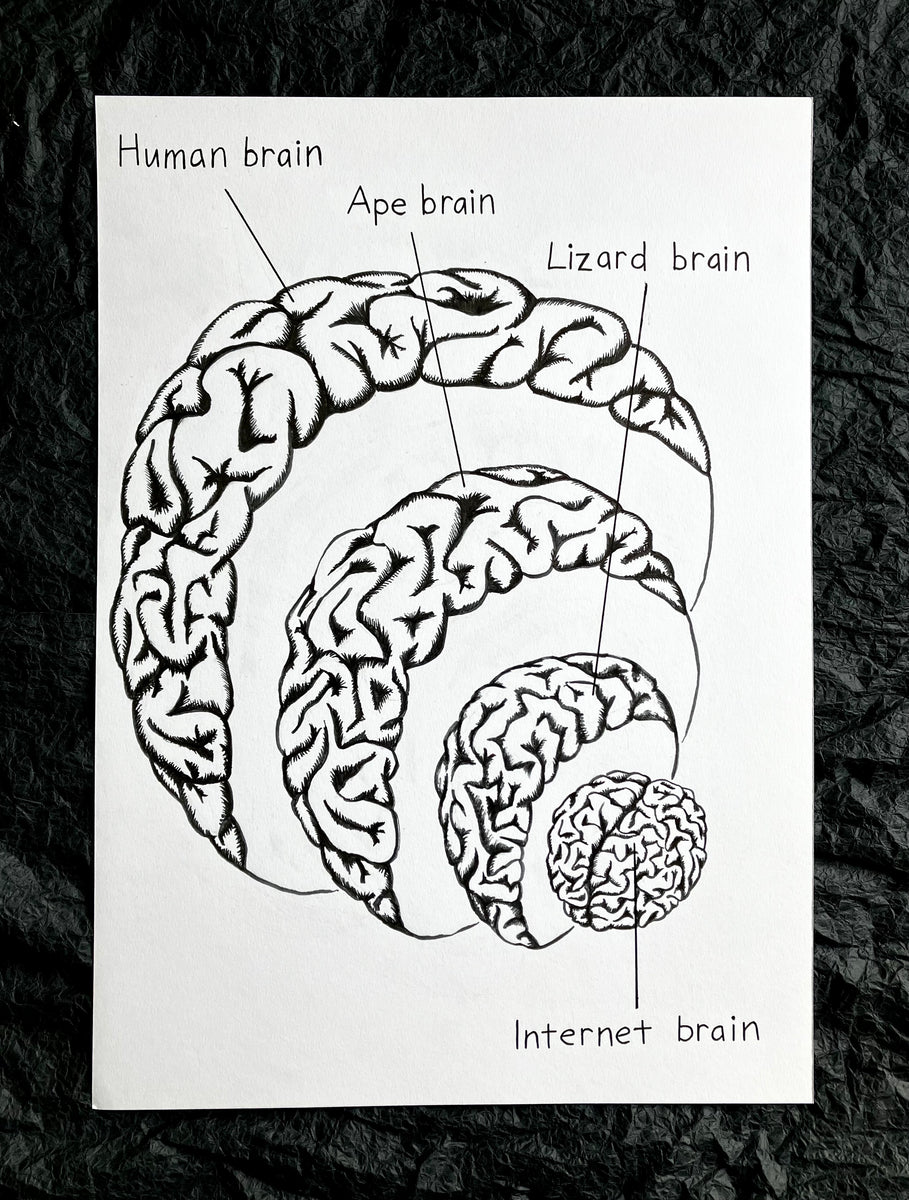 Human brain
Ape brain
Lizard brain
Internet brain